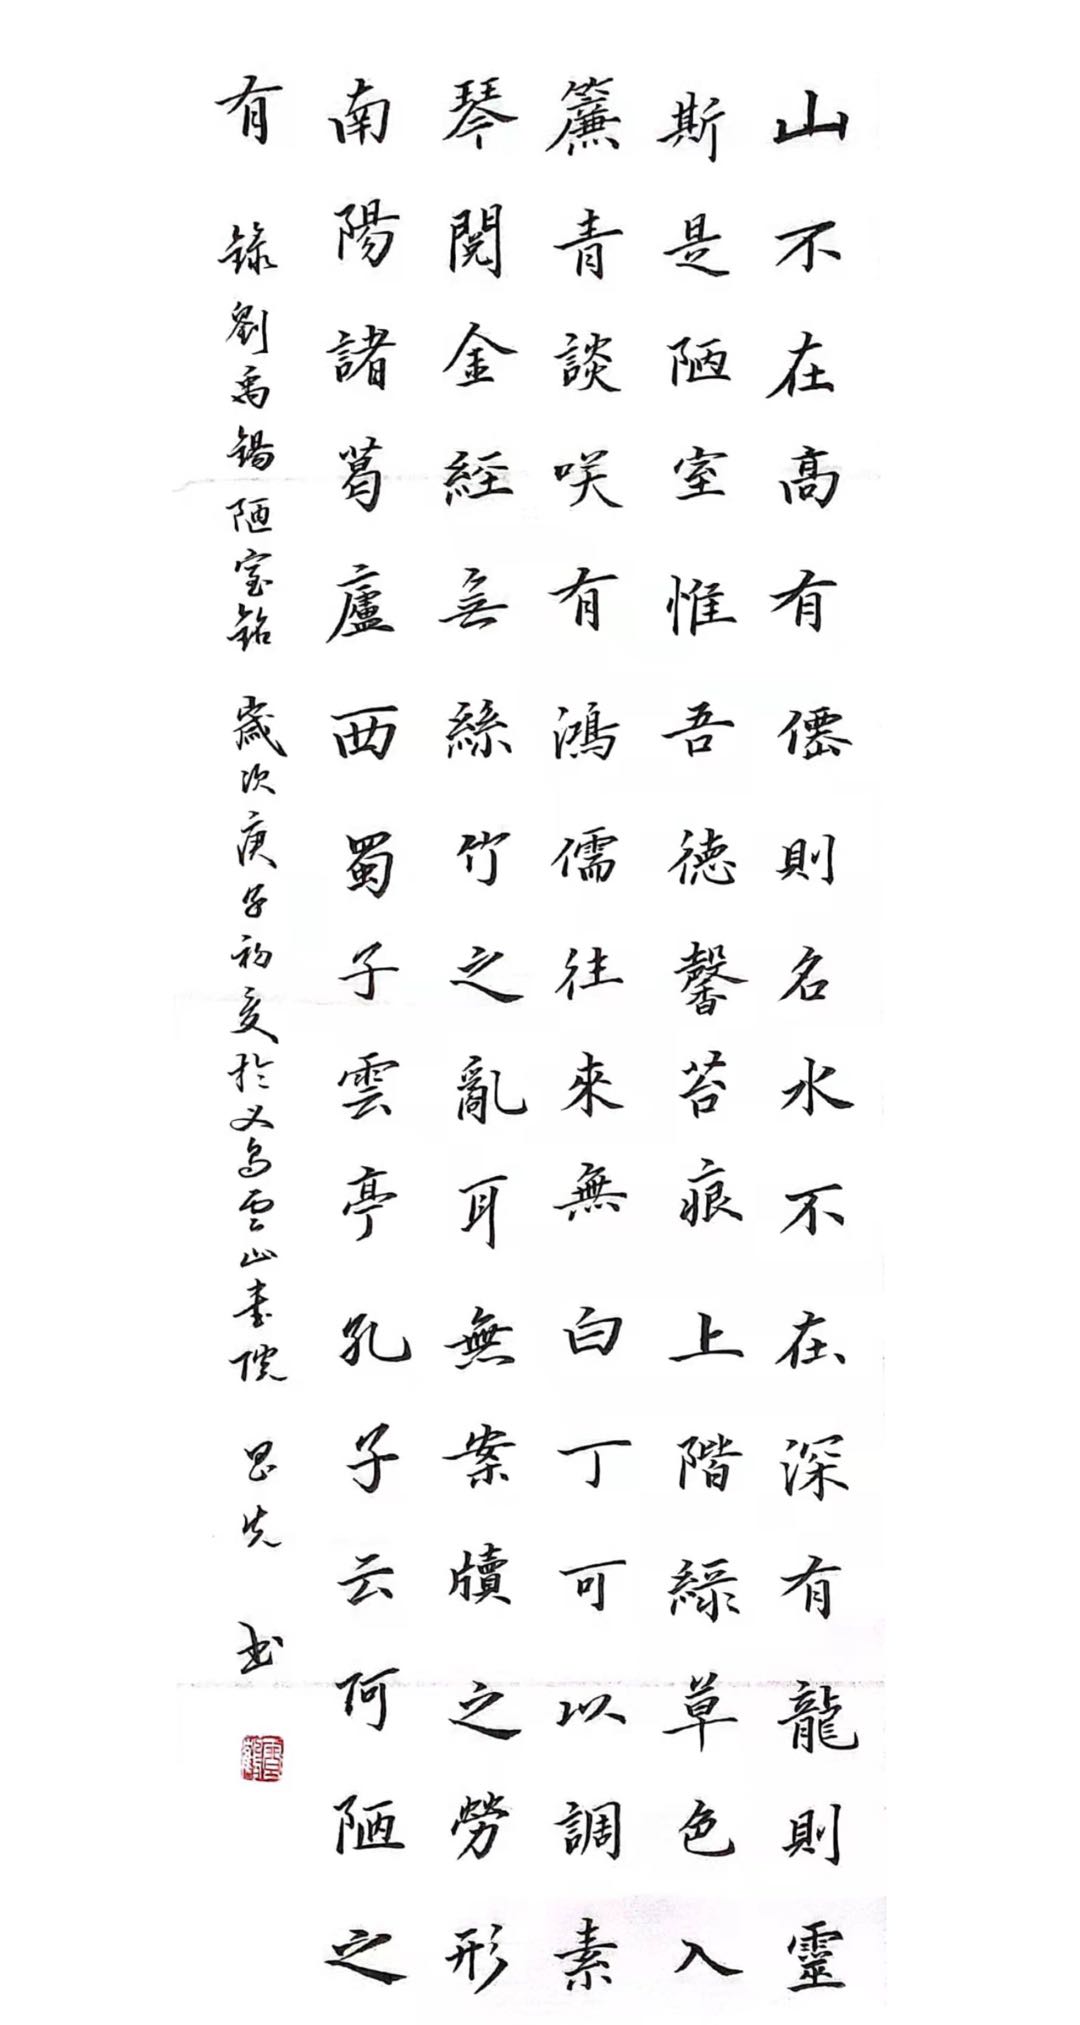 山不在高有僊則名水不在深有龍則靈
斯是陋室惟吾德馨苔痕上階緑草色入
簾青談咲有鴻儒往來無白丁可以調素
琴閱金經無絲竹之亂耳無案牘之勞形
南陽諸葛廬西蜀子雲亭孔子云何陋之
有 錄劉禹錫陋室銘 歲次庚子初夏於义烏雲山書院 書